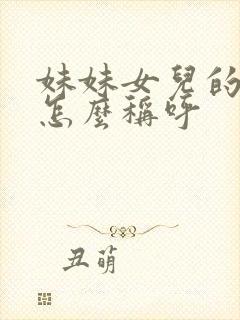 妹妹女兒的
怎麼稱呼
丑萌